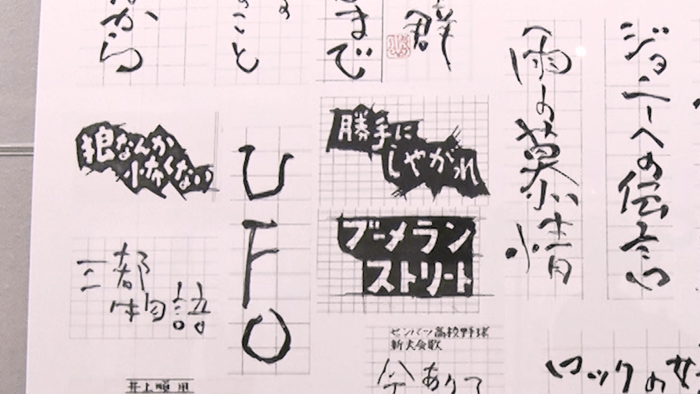 から
こと
まで
群
ジョニーへの伝言
雨の慕情
狼なんか
怖くない
UFO
勝手に
しやがれ
ブーメラン
ストリート
三都
物語
センバツ高校野球
新大会歌
今ありて
ロックの
井上順